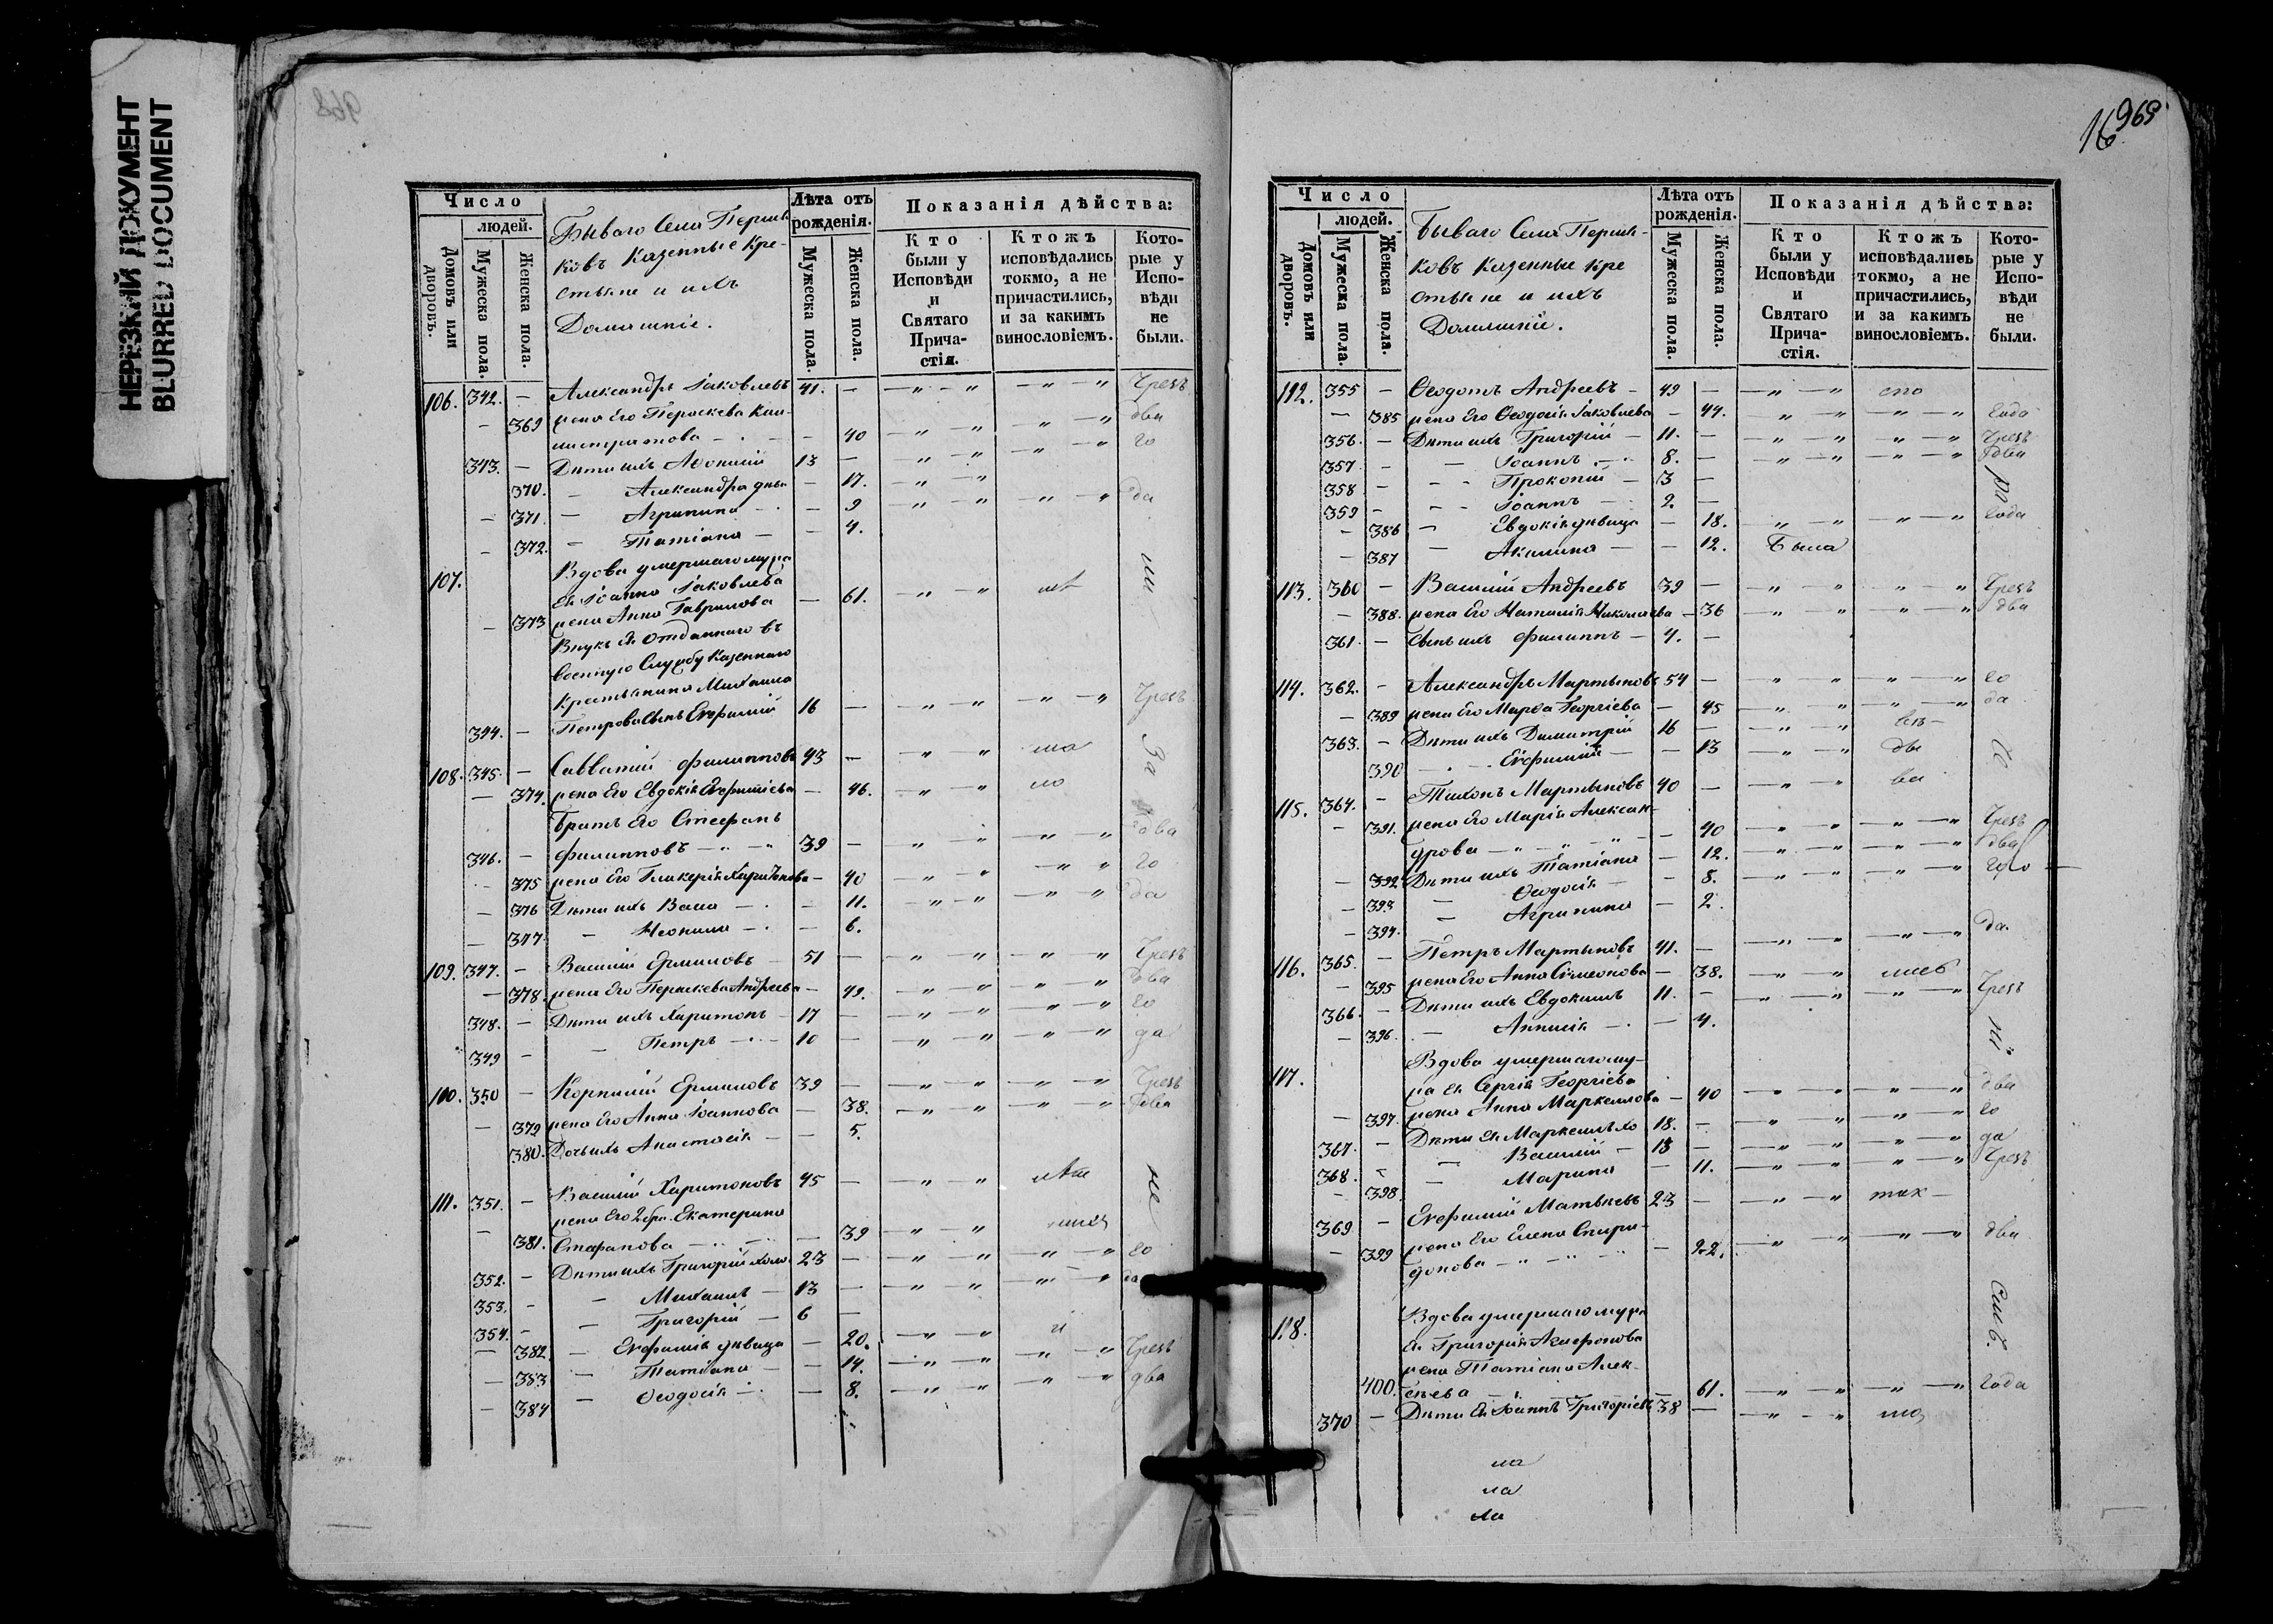 НЕРЕЗКИЙ ДОКУМЕНТ
BLURRED DOCUMENT
968
Число
людей.
Домовъ или дворовъ.
Мужеска пола.
Женска пола.
Бываго Села Перши-
ковъ Казенные Кре-
стьяне и ихъ
Домашніе.
Лѣта отъ рожденія.
Мужеска пола.
Женска пола.
Показанія дѣйства:
Кто были у Исповѣди и Святаго Прича-стія.
Ктожъ исповѣдались токмо, а не причастились, и за какимъ винословіемъ.
Кото-рые у Испо-вѣди не были.
106. 342. — Александръ Іаковлевъ 41. — Чрезъ
— 369 жена Его Параскева Кали- два
стратова — 40 го
343. — Дѣти ихъ Афонасій 13 —
370. — Александра дѣв. — 17.
— 371. — Агрипина — 9 да
— 372. — Татіана — 4.
107. Вдова умершаго мужа
Ея Іоанна Іаковлева
— 373 жена Анна Гаврилова — 61.
Внукъ Ея отданнаго въ
военную Службу Казеннаго
Крестьянина Михаила
344. — Петрова Сынъ Евфимій 16 — Чрезъ
108. 345. — Савватій Филипповъ 43 —
— 374. жена Его Евдокія Евфиміева — 46.
Братъ Его Стефанъ
346. — Филипповъ 39 — два
— 375 жена Его Гликерія Харитонова — 40 го
— 376 Дѣти ихъ Васса — 11. да
— 377 — Неонила — 6.
109. 347. — Василій Ермиловъ — 51 — Чрезъ
— 378. жена Его Параскева Андреева — 49. два
348. — Дѣти ихъ Харитонъ — 17 — го
349 — Петръ — 10 — да
110. 350 — Корнилій Ермиловъ 39 — Чрезъ
— 379 жена Его Анна Іоаннова — 38. два
380. Дочь ихъ Анастасія — 5.
111. 351. — Василій Харитоновъ 45 —
жена Его 2 бра. Екатерина
— 381. Стефанова — 39
352. — Дѣти ихъ Григорій холо. 23 — го
353. — Михаилъ — 13 — да
354. — Григорій — 6 —
— 382. — Евфимія дѣвица — 20.
— 383 — Татіана — 14. Чрезъ
— 384 — Ѳеодосія — 8. два
16 969
Число
людей.
Домовъ или дворовъ.
Мужеска пола.
Женска пола.
Бываго Села Перши-
ковъ Казенные Кре
стьяне и ихъ
Домашніе.
Лѣта отъ рожденія.
Мужеска пола.
Женска пола.
Показанія дѣйства:
Кто были у Исповѣди и Святаго Прича-стія.
Ктожъ исповѣдались токмо, а не причастились, и за какимъ винословіемъ.
Кото-рые у Испо-вѣди не были.
112. 355 — Ѳеодотъ Андреевъ — 49 —
— 385 жена Его Ѳеодосія Іаковлева — 44. года
356. — Дѣти ихъ Григорій — 11. — Чрезъ
357 — Іоаннъ — 8. — два
358 — Прокопій — 3 —
359 — Іоаннъ — 2. —
— 386 — Евдокія дѣвица — 18. года
— 387 — Акилина — 12. Была
113. 360 — Василій Андреевъ 39 — Чрезъ
— 388. жена Его Наталія Николаева — 36 два
361. — Сынъ ихъ Филиппъ — 4. —
114. 362. — Александръ Мартыновъ 54 — го
— 389 жена Его Марѳа Георгіева — 45 да
363. — Дѣти ихъ Димитрій 16 —
390 — Евфимія — 13
115. 364. — Тихонъ Мартыновъ 40 —
— 391. жена Его Марія Алексан-
дрова — 40 Чрезъ
— 392 Дѣти ихъ Татіана — 12. два
— 393 — Ѳеодосія — 8.
— 394. — Агрипина — 2.
116. 365. — Петръ Мартыновъ 41. — да.
— 395 жена Его Анна Симеонова — 38.
366. — Дѣти ихъ Евдокимъ 11. — Чрезъ
— 396. — Аннисія — 4.
117. Вдова умершаго му-
жа Ея Сергія Георгіева
— 397. жена Анна Маркеллова — 40 два
367. — Дѣти Ея Маркеллъ хо 18. — го
368. — Василій — 13 — да
— 398. — Марина — 11. Чрезъ
369 — Евфимій Матвѣевъ 23 —
— 399 жена Его Елена Спири-
донова — 22. два
118. Вдова умершаго мужа
Ея Григорія Агафонова
жена Татіана Алек-
400. сѣева — 61. года
370 — Дѣти Ея Іоаннъ Григорьевъ 38 —